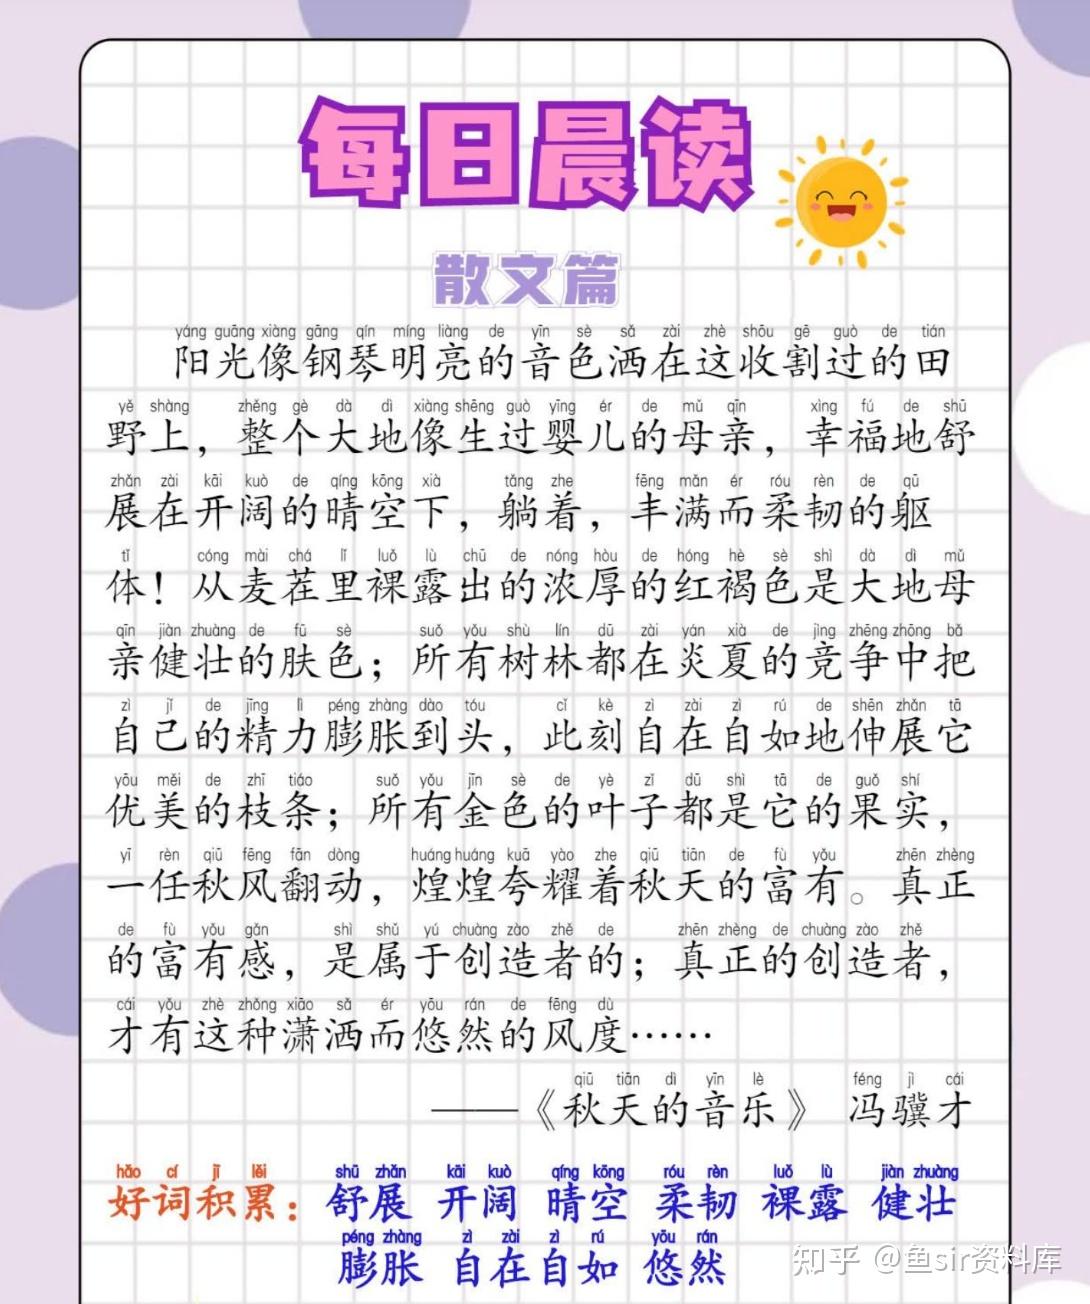 每日晨读
散文篇
yáng guāng xiàng gāng qín míng liàng de yīn sè sǎ zài zhè shōu gē guò de tián
阳光像钢琴明亮的音色洒在这收割过的田
yě shàng zhěng gè dà dì xiàng shēng guò yīng ér de mǔ qīn xìng fú de shū
野上，整个大地像生过婴儿的母亲，幸福地舒
zhǎn zài kāi kuò de qíng kōng xià tǎng zhe fēng mǎn ér róu rèn de qū
展在开阔的晴空下，躺着，丰满而柔韧的躯
tǐ cóng mài chá lǐ luǒ lù chū de nóng hòu de hóng hè sè shì dà dì mǔ
体！从麦茬里裸露出的浓厚的红褐色是大地母
qīn jiàn zhuàng de fū sè suǒ yǒu shù lín dū zài yán xià de jìng zhēng zhōng bǎ
亲健壮的肤色；所有树林都在炎夏的竞争中把
zì jǐ de jīng lì péng zhàng dào tóu cǐ kè zì zài zì rú de shēn zhǎn tā
自己的精力膨胀到头，此刻自在自如地伸展它
yōu měi de zhī tiáo suǒ yǒu jīn sè de yè zǐ dū shì tā de guǒ shí
优美的枝条；所有金色的叶子都是它的果实，
yī rèn qiū fēng fān dòng huáng huáng kuā yào zhe qiū tiān de fù yǒu zhēn zhèng
一任秋风翻动，煌煌夸耀着秋天的富有。真正
de fù yǒu gǎn shì shǔ yú chuàng zào zhě de zhēn zhèng de chuàng zào zhě
的富有感，是属于创造者的；真正的创造者，
cái yǒu zhè zhǒng xiāo sǎ ér yōu rán de fēng dù
才有这种潇洒而悠然的风度……
qiū tiān dì yīn lè féng jì cái
——《秋天的音乐》 冯骥才
hǎo cí jī lěi shū zhǎn kāi kuò qíng kōng róu rèn luǒ lù jiàn zhuàng
好词积累：舒展 开阔 晴空 柔韧 裸露 健壮
péng zhàng zì zài zì rú yōu rán
膨胀 自在自如 悠然
知乎 @鱼sir资料库